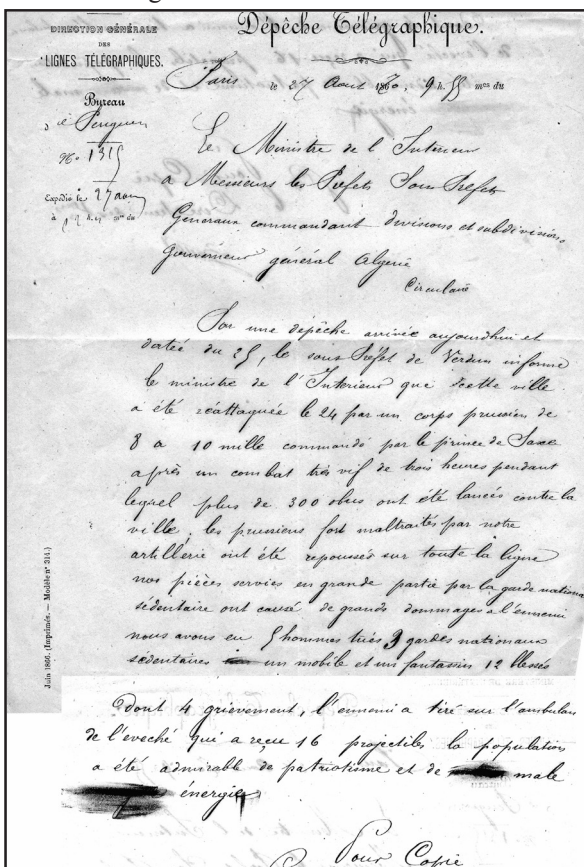 DIRECTION GÉNÉRALE
DES
LIGNES TÉLÉGRAPHIQUES.
Bureau
No 1315
Expédié le 27 aout
à
Dépêche Télégraphique.
Paris le 27 Aout 1870, 9 h. 55 mes du
Le Ministre de l'Interieur
a Messieurs les Prefets Sous Prefets
Generaux commandant divisions et subdivisions
gouverneur général Algerie
Circulaire
Par une dépêche arrivée aujourdhui et
datée du 25, le sous Préfet de Verdun informe
le ministre de l'Interieur que cette ville
a été réattaquée le 24 par un corps prussien de
8 a 10 mille commandé par le prince de Saxe
après un combat très vif de trois heures pendant
lequel plus de 300 obus ont été lancés contre la
ville, les prussiens fort maltraités par notre
artillerie ont été repoussés sur toute la ligne
nos pièces servies en grande partie par la garde nationa
sédentaire ont causé de grands dommages a l'ennemi
nous avons eu 5 hommes tués 3 gardes nationaux
sédentaires un mobile et un fantassin 12 blessés
dont 4 grievement, l'ennemi a tiré sur l'ambulan
de l'eveché qui a reçu 16 projectiles la population
a été admirable de patriotisme et de male
énergie
Pour Copie
Juin 1866. (Imprimés. — Modèle n° 314.)